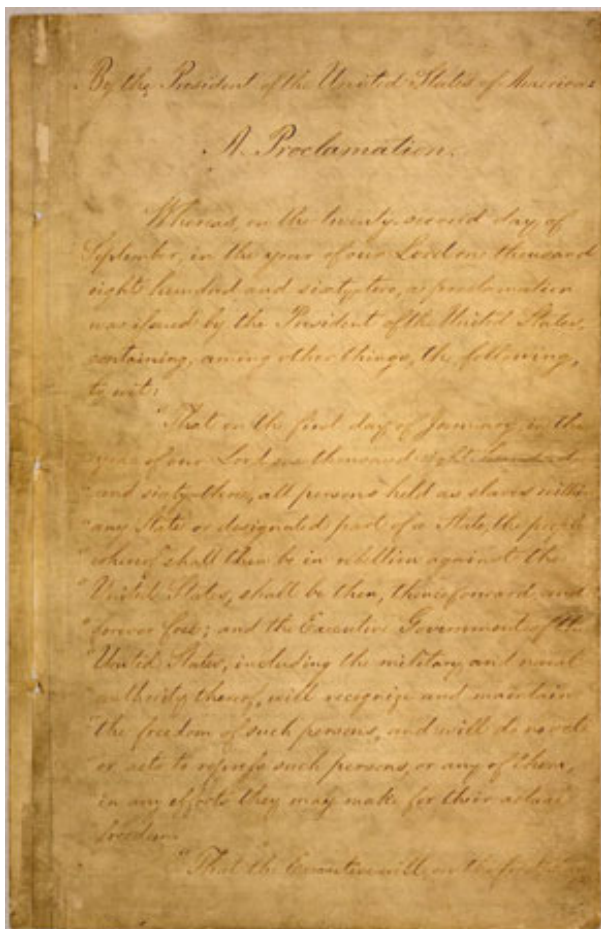 By the President of the United States of America:
A Proclamation.
Whereas, on the twenty-second day of
September, in the year of our Lord one thousand
eight hundred and sixty-two, a proclamation
was issued by the President of the United States,
containing, among other things, the following,
to wit:
"That on the first day of January, in the
year of our Lord one thousand eight hundred
"and sixty-three, all persons held as slaves within
"any State or designated part of a State, the people
"whereof shall then be in rebellion against the
"United States, shall be then, thenceforward, and
"forever free; and the Executive Government of the
"United States, including the military and naval
"authority thereof, will recognize and maintain
"the freedom of such persons, and will do no act
"or acts to repress such persons, or any of them,
"in any efforts they may make for their actual
"freedom.
"That the Executive will, on the first